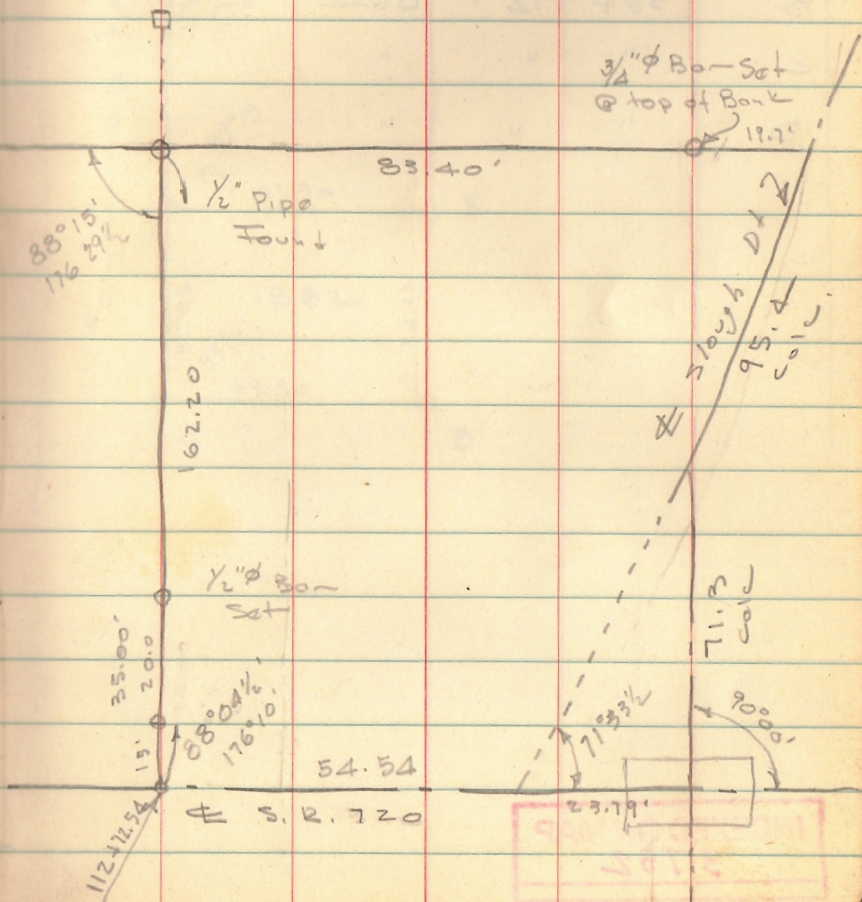 3/4"ø Bar Set
@ top of Bank
19.7'
83.40'
1/2" Pipe
Found
88°15'
176 29 1/2
℄ Slough Dt
95.4
Calc.
162.20
1/2"ø Bar
Set
71.3
Calc
35.00'
20.0
15'
88°04 1/2'
176°10'
71°33 1/2
90°00'
54.54
23.79'
℄ S.R. 720
112+72.54